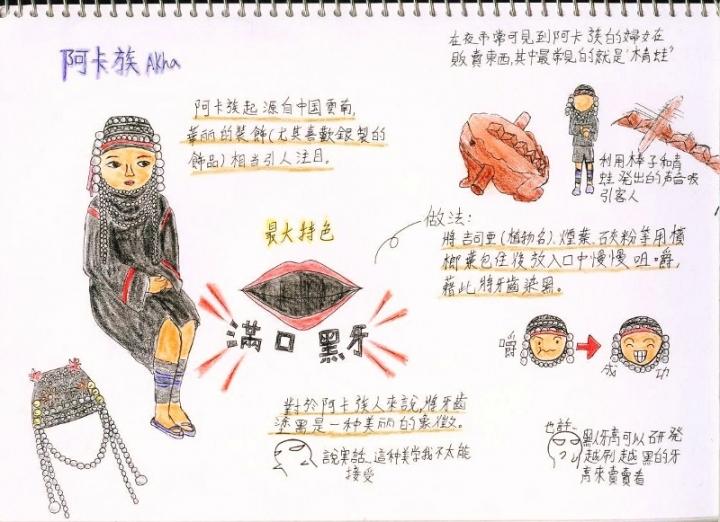 阿卡族 Akha
在夜市常可見到阿卡族的婦女在
販賣東西,其中最常見的就是"木青蛙"
阿卡族起源自中国雲南,
華丽的裝飾(尤其喜歡銀製的
飾品)相当引人注目。
利用棒子和青
蛙發出的声音吸
引客人
最大特色
滿口黑牙
做法:
將吉司亜(植物名)、煙葉、石灰粉等用檳
榔葉包住後放入口中慢慢咀嚼,
藉此將牙齒染黑。
嚼
成功
對於阿卡族人來說,將牙齒
塗黑是一种美丽的象徵。
說実話,這种美学我不太能
接受
也許...
黑人牙膏可以研發
越刷越黑的牙
膏來賣賣看